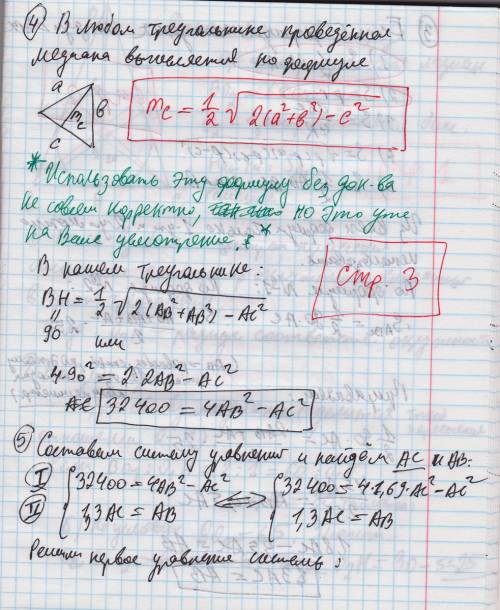 ④ В любом треугольнике проведённая
медиана вычисляется по формуле
a
b
c
m_c
m_c = 1/2 √(2(a²+b²) - c²)
* Использовать эту формулу без док-ва
не совсем корректно, но это уже
на Ваше усмотрение. *
В нашем треугольнике:
стр. 3
BH = 1/2 √(2(AB²+AB²) - AC²)
"
90 или
4·90² = 2·2AB² - AC²
32400 = 4AB² - AC²
⑤ Составляем систему уравнений и найдём AC и AB:
I { 32400 = 4AB² - AC² ⟺ { 32400 = 4·1,69·AC² - AC²
II { 1,3AC = AB { 1,3AC = AB
Решим первое уравнение системы: